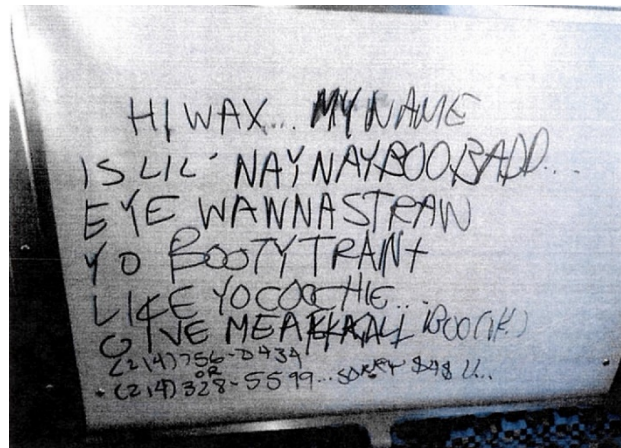 HI WAX... MY NAME
IS LIL' NAYNAYBOOBADD...
EYE WANNA STRAW
YO BOOTY TRANT
LIKE YO COOCHIE...
GIVE ME A
(214) 756-0434
OR
(214) 328-5599...